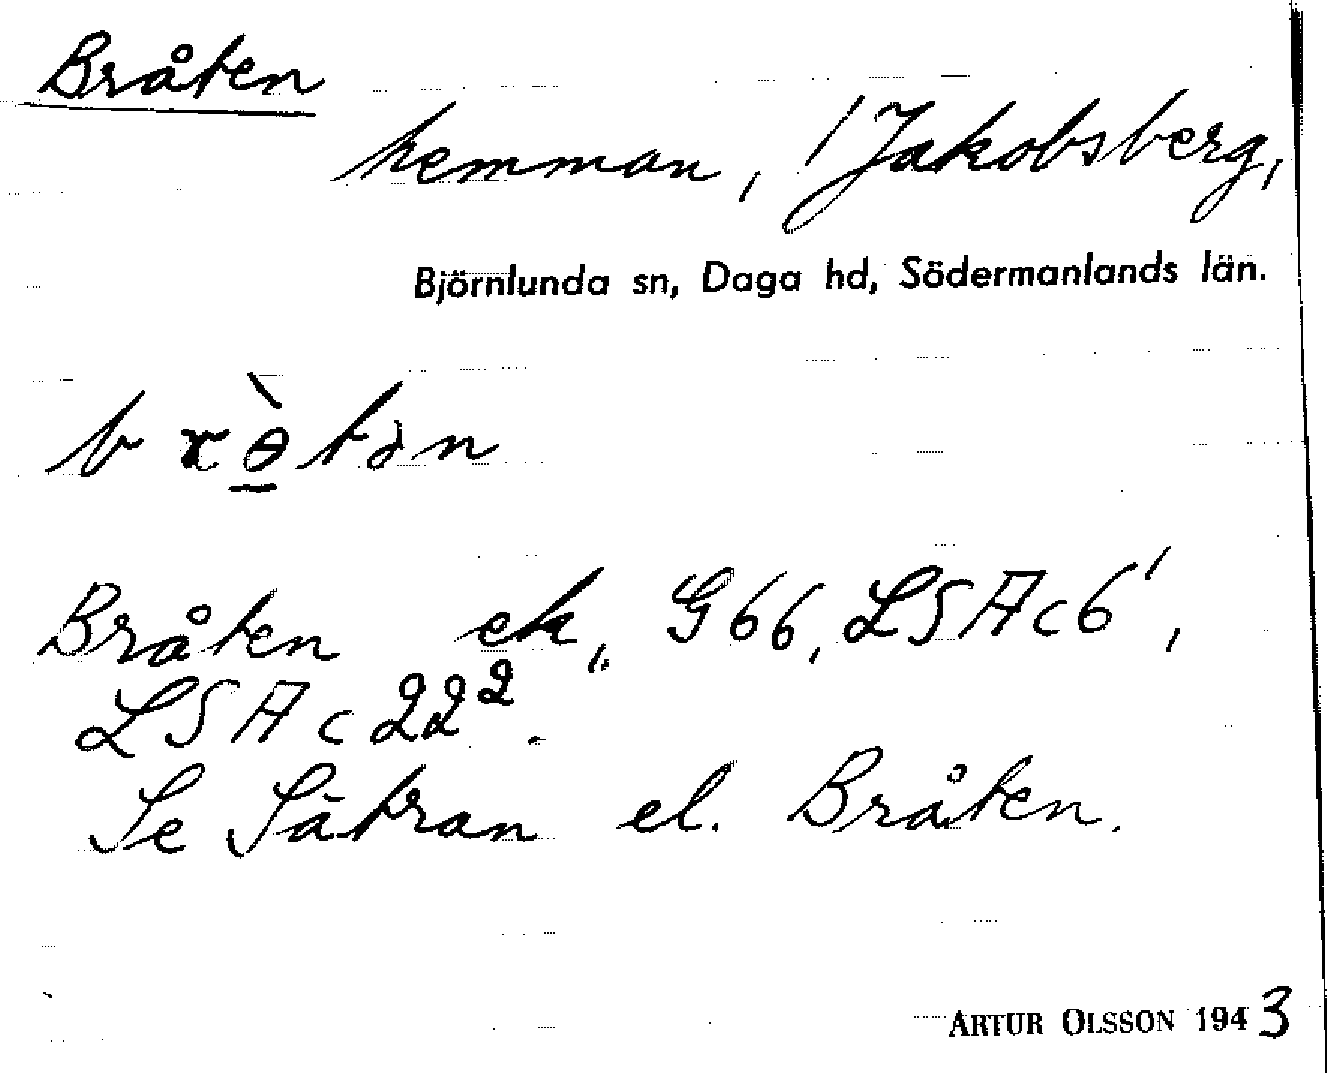 Bråten
hemman, /Jakobsberg,
Björnlunda sn, Daga hd, Södermanlands län.
brɵ̀tən
Bråten ek., G66, LSA c6¹,
LSA c22².
Se Sätran el. Bråten.
ARTUR OLSSON 1943